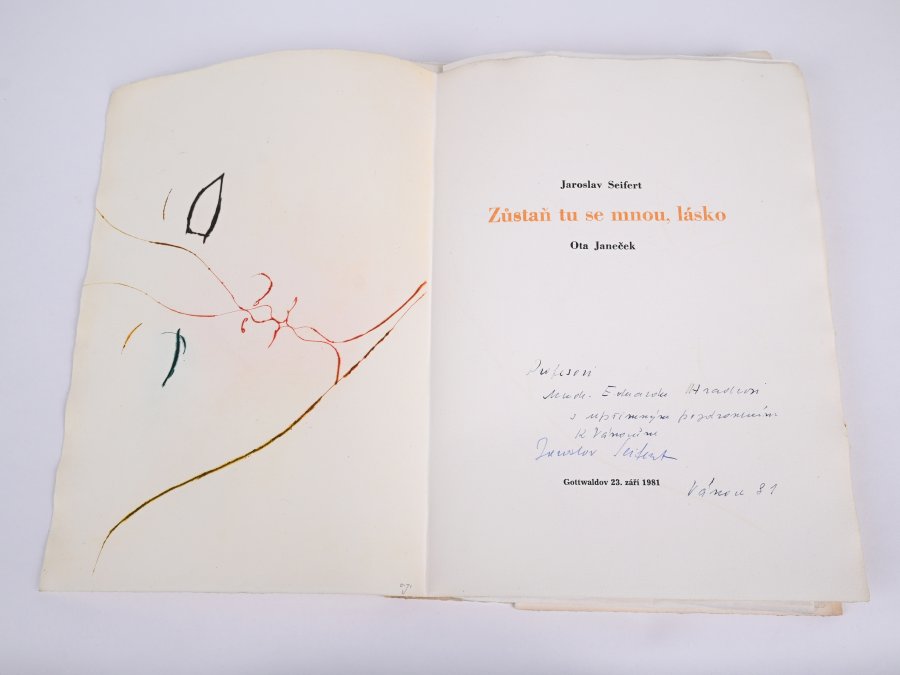 Jaroslav Seifert
Zůstaň tu se mnou, lásko
Ota Janeček
Profesoru
Mudr. Eduardu
s upřímným pozdravením
k Vánocům
Jaroslav Seifert
Gottwaldov 23. září 1981
Vánoce 81